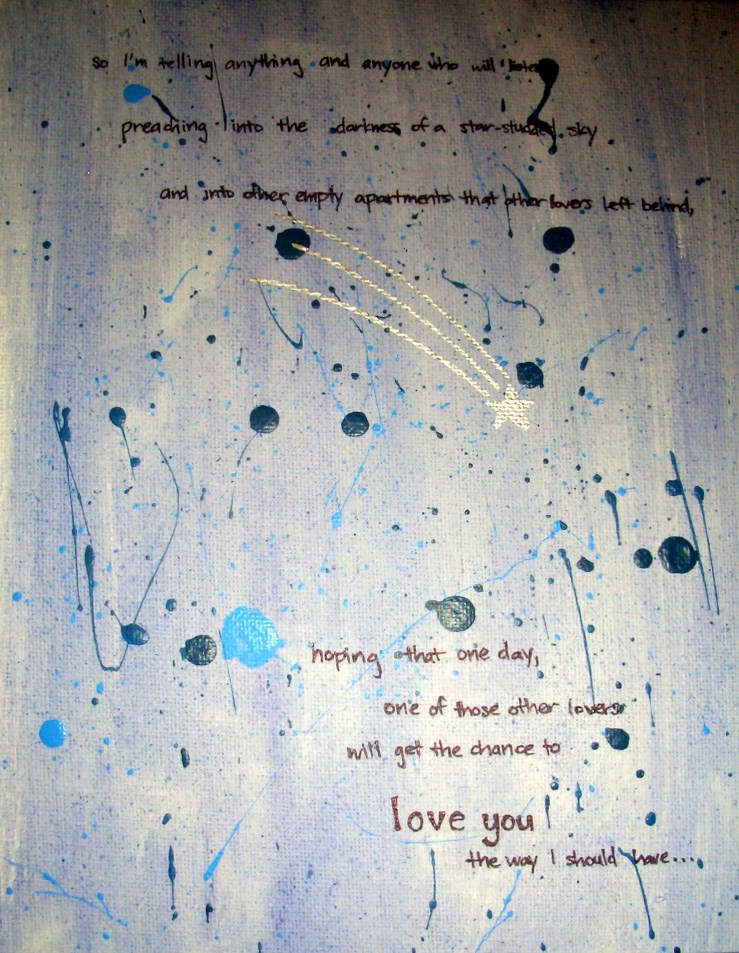 so I'm telling anything and anyone who will listen
preaching into the darkness of a star-studded sky
and into other empty apartments that other lovers left behind,
hoping that one day,
one of those other lovers
will get the chance to
love you
the way I should have...